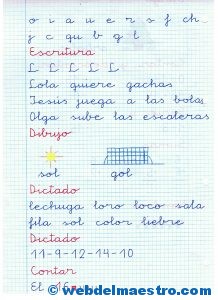 o i a u e r s f ch
y c qu b g l
Escritura
L L L L L
Lola quiere gachas
Jesus juega a las bolas
Olga sube las escaleras
Dibujo
sol gol
Dictado
lechuga loro loco sala
fila sol color liebre
Dictado
11-9-12-14-10
Contar
El 16
© webdelmaestro.com